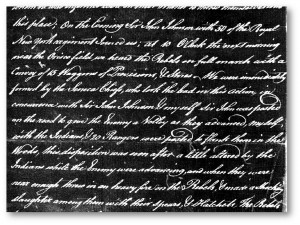 this place; On the Evening Sir John Johnson with 50 of the Royal
New York regiment joined us; at 10 O'Clock the next morning
near the Oriska field, we heard the Rebels on full march with a
Convoy of 15 Waggons of Provisions, & Stores. We were immediately
formed by the Seneca Chiefs, who took the lead in this action, in
concurrence with Sir John Johnson & myself. Sir John was
on the road to give the Enemy Volley as they advanced, myself
with the Indians, & 20 Rangers were posted to flank them in the
Woods; this disposition was soon after a little altered by the
Indians while the Enemy were advancing, and when they were
near enough threw in an heavy fire on the Rebels, & made a
slaughter among them with their Spears, & Hatchets. The Rebels